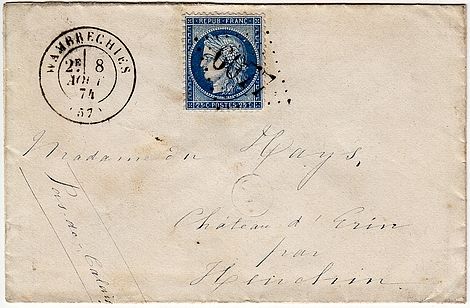 WAMBRECHIES
2E 8
AOUT
74
(57)
REPUB FRANC
25 C POSTES 25 C
Madame du Hays,
Château d' Erin
par
Hesdin
Pas-de-Calais